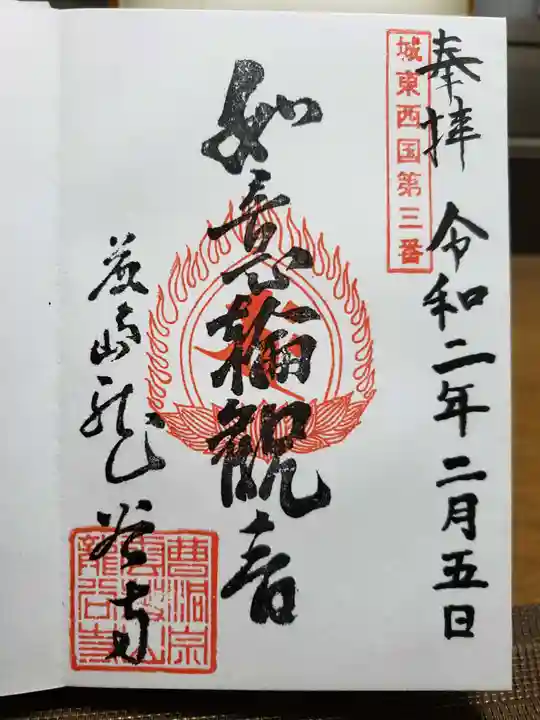 奉拝
令和二年二月五日
城東西国第三番
如意輪観音
龍谷寺
曹洞宗
龍谷寺